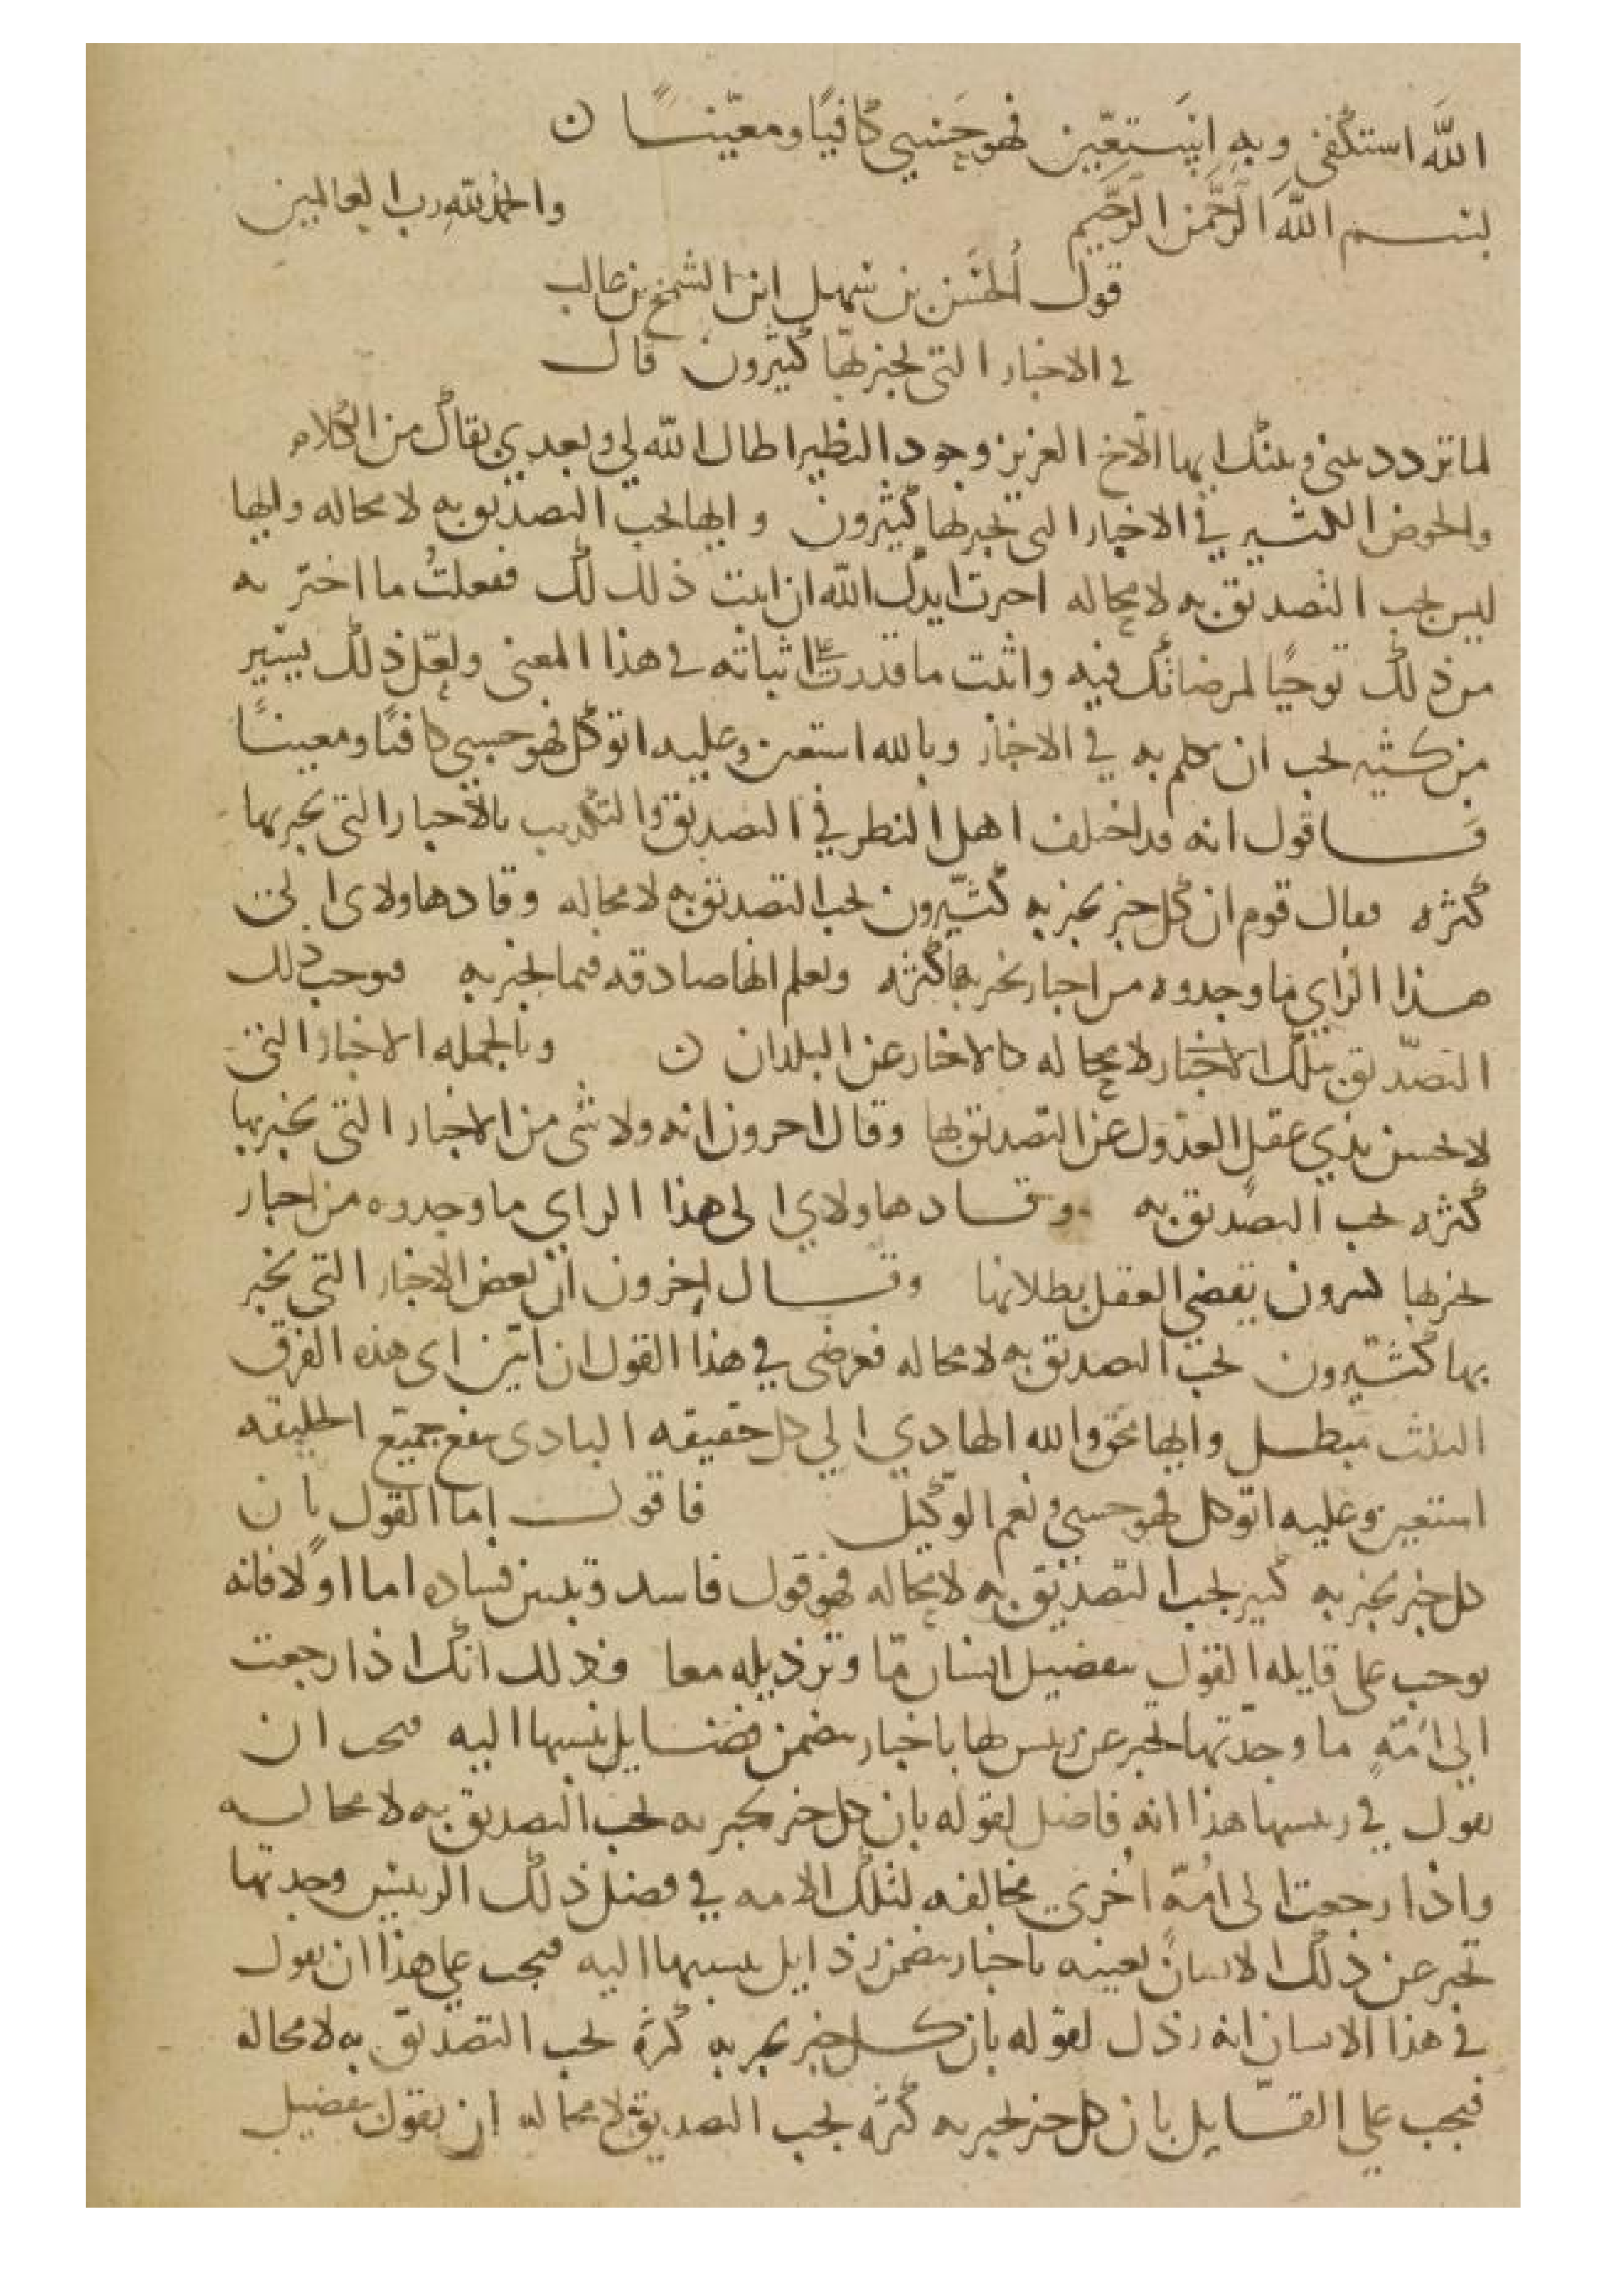 الله استكفى وبه استعين فهو حسبي كافيًا ومعينًا ن
بسم الله الرحمن الرحيم والحمد لله رب العالمين
قول الحسن بن سهل ابن السمح بن غالب
في الاخبار التي يخبر بها كثيرون قال
لما تردد بيني وبينك ايها الاخ العزيز وجود النظير اطال الله لي وبعدي بقاك من الكلام
والخوض الكثير في الاخبار التي يخبر بها كثيرون وايها يجب التصديق به لا محاله وايها
ليس يجب التصديق به لا محاله اخترت ايدك الله ان اثبت ذلك لك ففعلتُ ما اخترته
من ذلك توخيًا لمرضاتك فيه واثبت ما قدرت على اثباته في هذا المعنى ولعل ذلك يسير
من كثير يجب ان يتكلم به في الاخبار وبالله استعين وعليه اتوكل فهو حسبي كافيًا ومعينًا
فاقول انه قد اختلف اهل النظر في التصديق والتكذيب بالاخبار التي يخبر بها
كثره فقال قوم ان كل خبر يخبر به كثيرون يجب التصديق به لا محاله وقاد هاولاى الى
هذا الراي ما وجدوه من اخبار يخبر بها كثره ونعلم انها صادقه فيما يخبر به فوجب لذلك
التصديق بتلك الاخبار لا محاله كالاخبار عن البلدان ن وبالجمله الاخبار التي
لا يحسن بذي عقل العدول عن التصديق بها وقال اخرون انه ولا شي من الاخبار التي يخبر بها
كثره يجب التصديق به وقاد هاولاي الى هذا الراي ما وجدوه من اخبار
يخبر بها كثيرون يقضي العقل ببطلانها وقال اخرون ان بعض الاخبار التي يخبر
بها كثيرون يجب التصديق به لا محاله فغرضي في هذا القول ان ابين اى هذه الفرق
الثلث مبطل وايها محق والله الهادي الي كل حقيقه البادى بنفع جميع الخليقه
استعين وعليه اتوكل فهو حسبي ونعم الوكيل فاقول اما القول بان
كل خبر يخبر به كثير يجب التصديق به لا محاله فهو قول فاسد وبين فساده اما اولًا فانه
يوجب على قايله القول بتفضيل انسان ما وترذيله معا وذلك انك اذا رجعت
الي امّةٍ ما وجدتها تخبر عن رئيس لها باخبار تتضمن فضايل تنسبها اليه فيجب ان
يقول في رئيسها هذا انه فاضل لقوله بان كل خبر يخبر به يجب التصديق به لا محاله
واذا رجعت الى امّه اخرى مخالفه لتلك الامه في فضل ذلك الرئيس وجدتها
تخبر عن ذلك الانسان بعينه باخبار تتضمن رذايل تنسبها اليه فيجب على هذا ان يقول
في هذا الانسان انه رذل لقوله بان كل خبر يخبر به كثرة يجب التصديق به لا محاله
فيجب على القايل بان كل خبر يخبر به كثره يجب التصديق لا محاله ان يقول بتفضيل